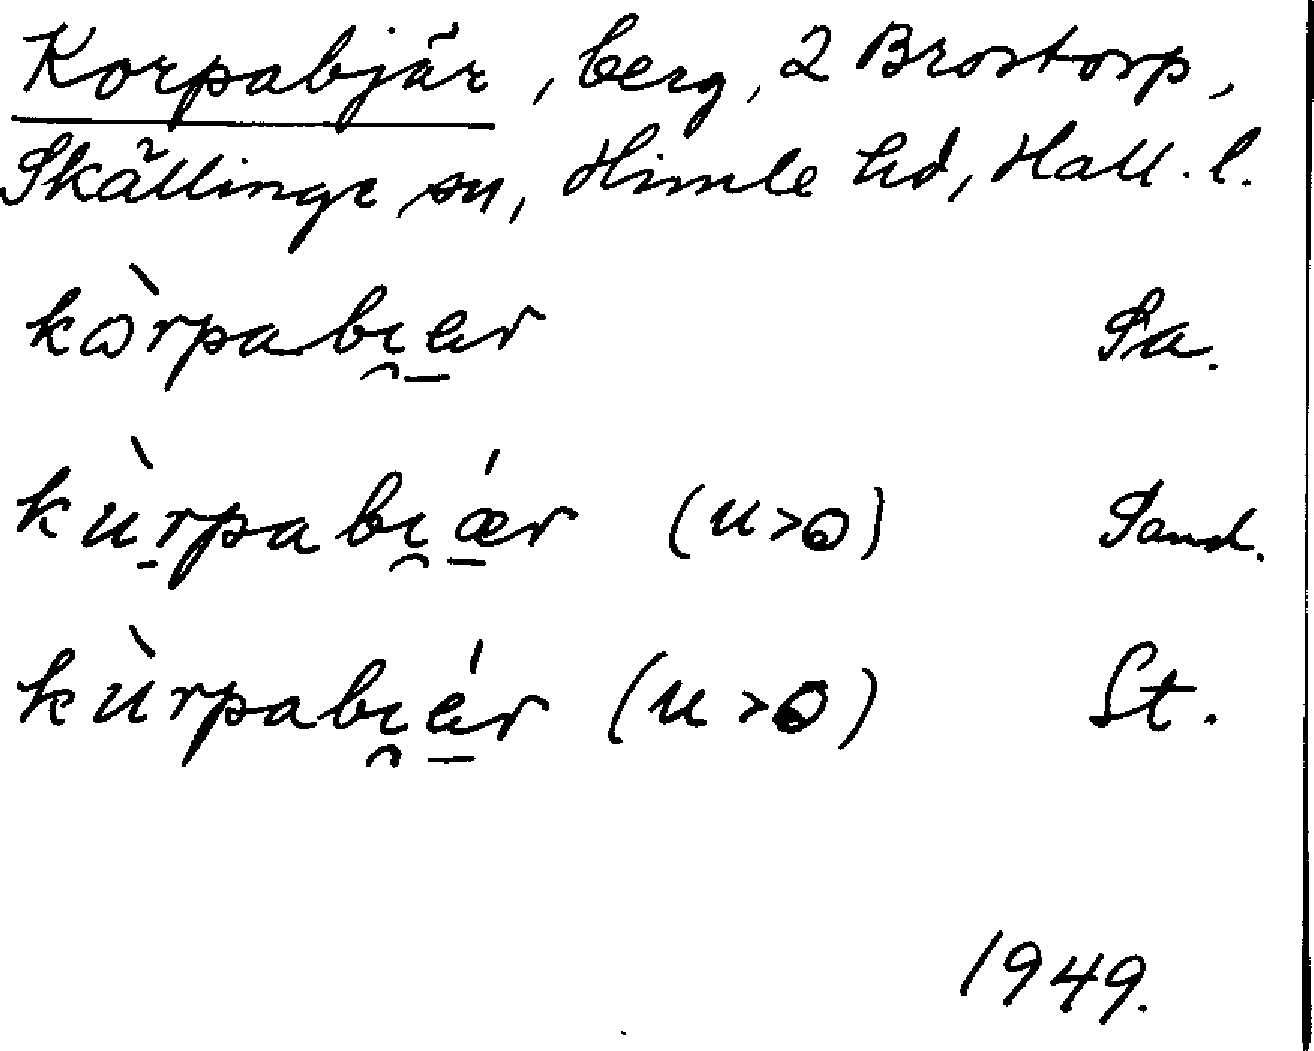 Korpabjär, berg, 2 Brostorp,
Skällinge sn, Himle hd, Hall. l.
kòrpabi̯ær Sa.
kùrpabi̯ǽr (u>o) Sand.
kùrpabi̯ǽr (u>o) St.
1949.